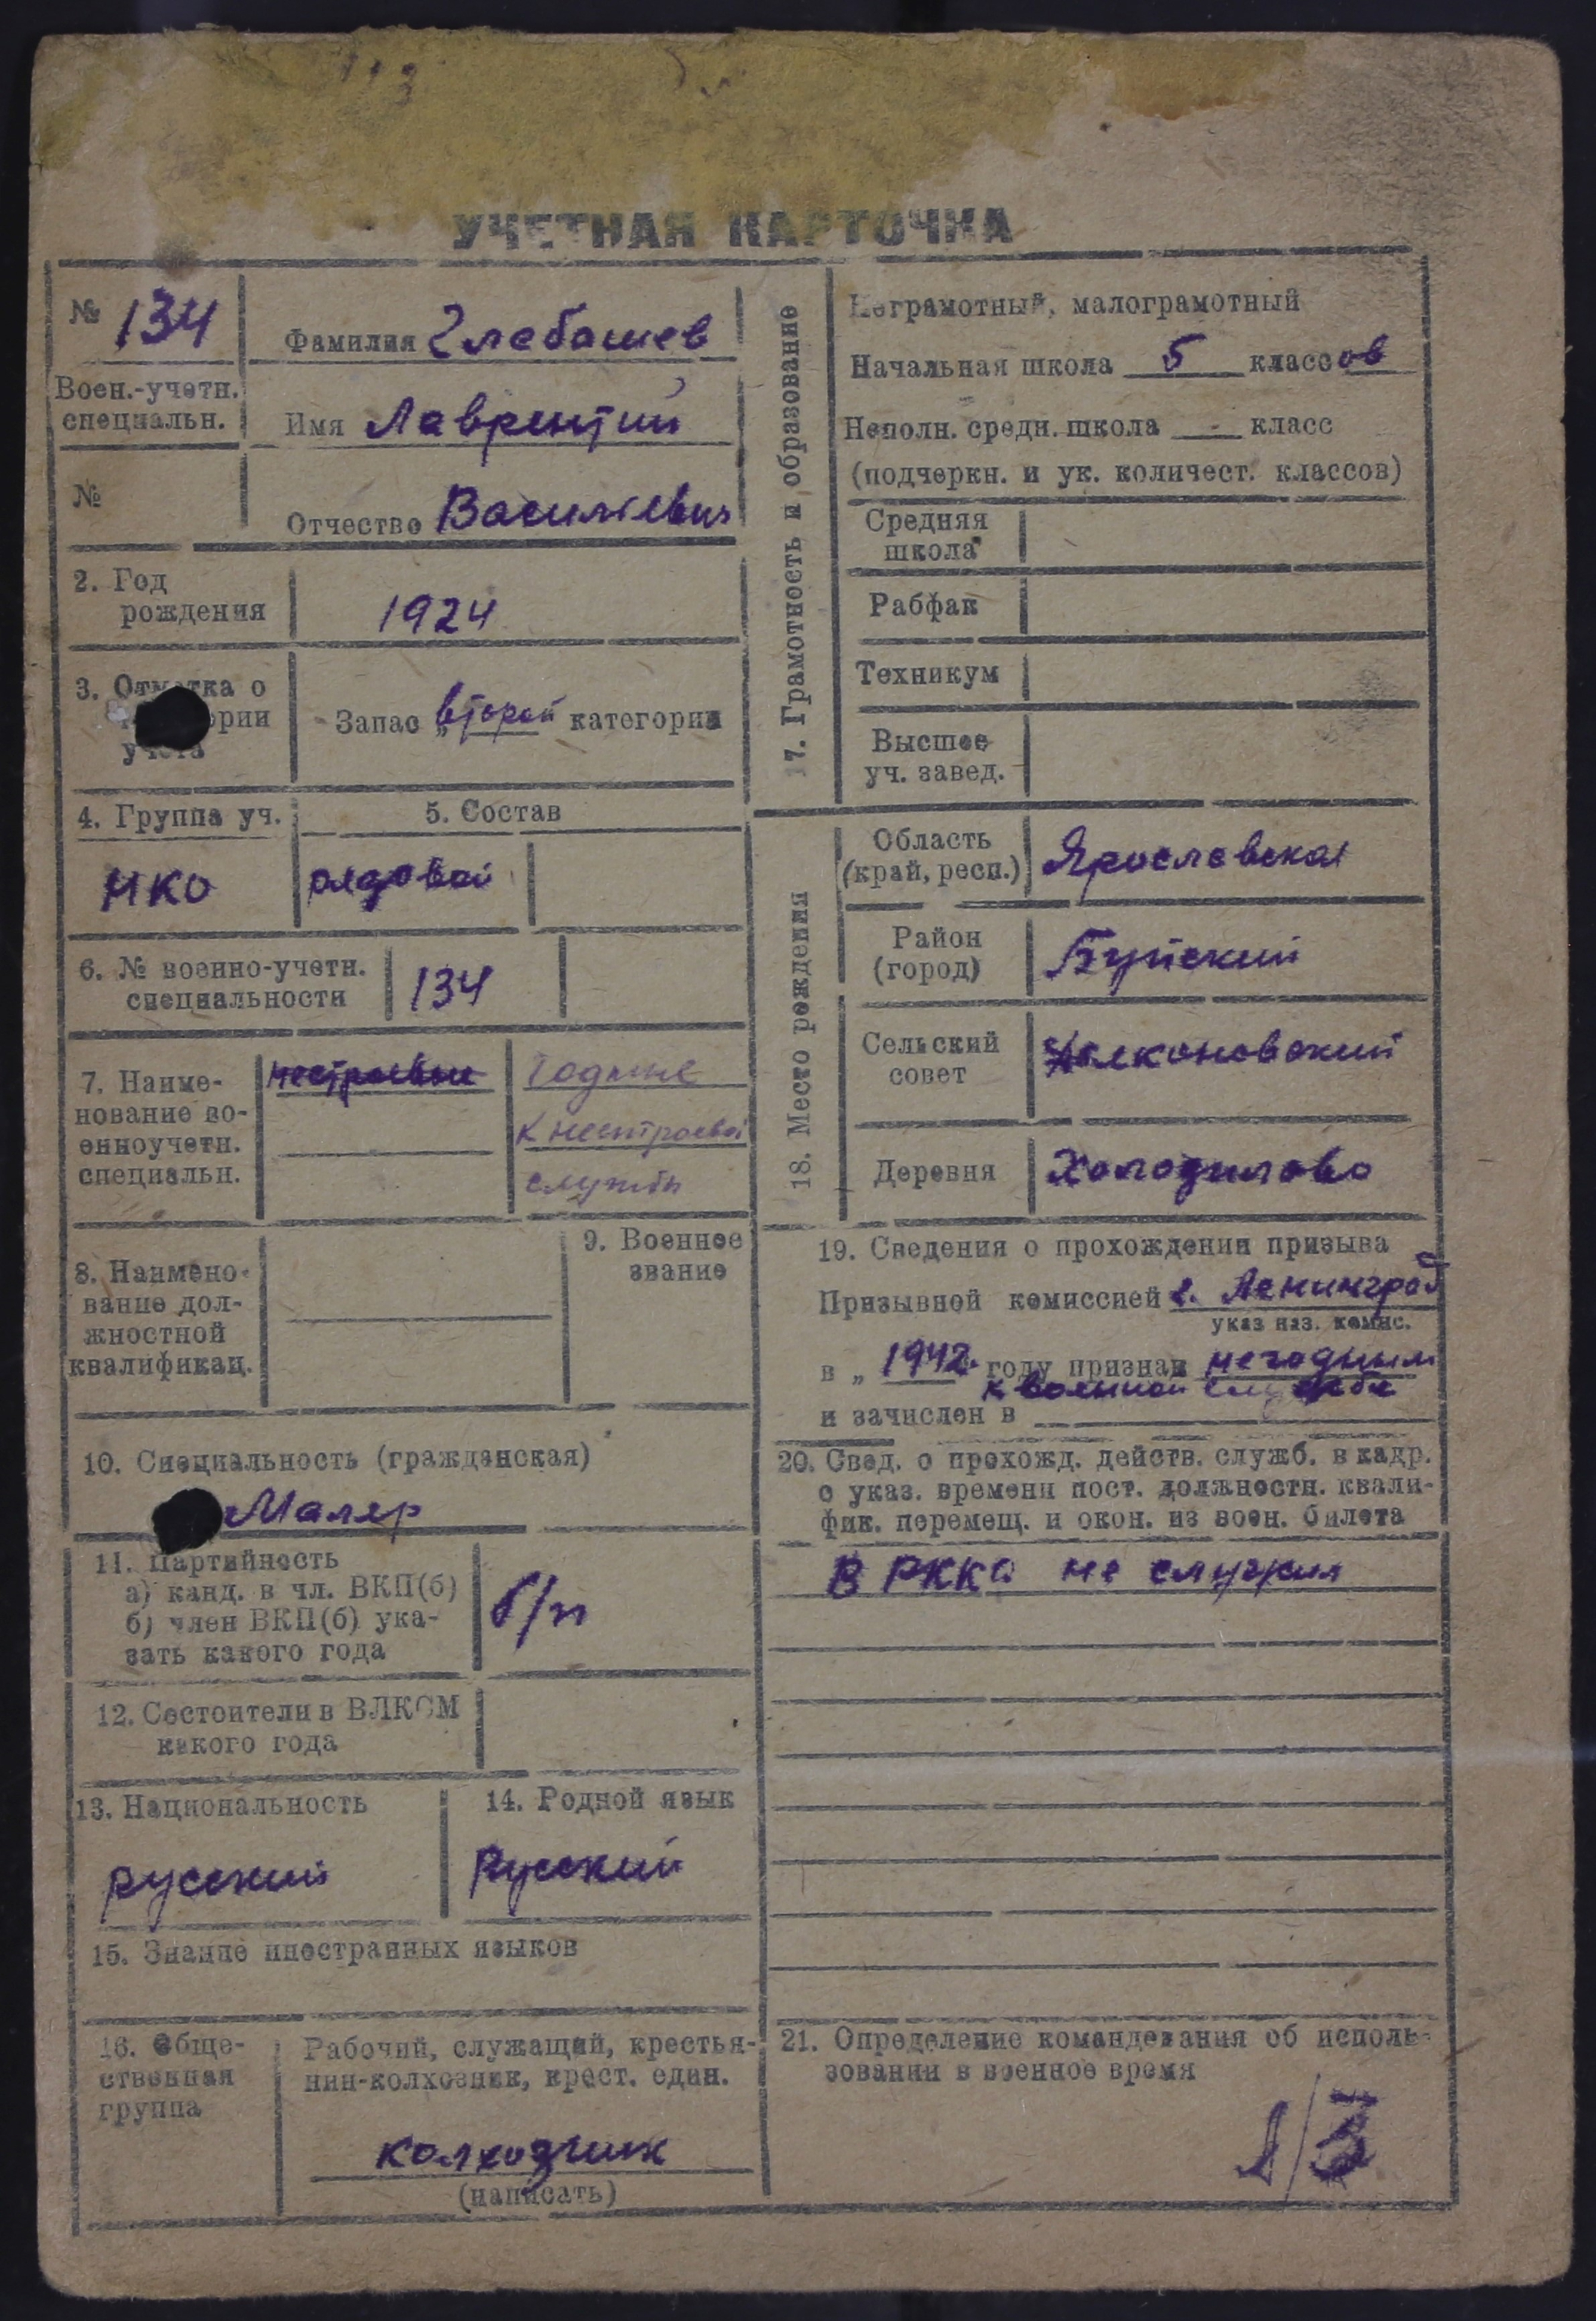 УЧЕТНАЯ КАРТОЧКА
№ 134
Воен.-учетн.
специальн.
№
Фамилия Глебашев
Имя Лаврентий
Отчество Васильевич
2. Год
рождения
1924
3. Отметка о
категории
учета
Запас „второй категории
4. Группа уч.
НКО
5. Состав
рядовой
6. № военно-учетн.
специальности
134
7. Наиме-
нование во-
енноучетн.
специальн.
нестроевые
Годные
к нестроевой
службы
8. Наимено-
вание дол-
жностной
квалификац.
9. Военное
звание
10. Специальность (гражданская)
Маляр
11. Партийность
а) канд. в чл. ВКП(б)
б) член ВКП(б) ука-
зать какого года
б/п
12. Состоители в ВЛКСМ
какого года
13. Национальность
русский
14. Родной язык
Русский
15. Знание иностранных языков
16. Обще-
ственная
группа
Рабочий, служащий, крестья-
нин-колхозник, крест. един.
колхозник
(написать)
17. Грамотность и образование
Неграмотный, малограмотный
Начальная школа 5 классов
Неполн. средн. школа - класс
(подчеркн. и ук. количест. классов)
Средняя
школа
Рабфак
Техникум
Высшее
уч. завед.
18. Место рождения
Область
(край, респ.)
Ярославская
Район
(город)
Буйский
Сельский
совет
Деревня
Холодилово
19. Сведения о прохождении призыва
Призывной комиссией г. Ленинград
указ наз. комис.
в „ 1942. году признан негодным
к военной службе
и зачислен в
20. Свед. о прохожд. действ. служб. в кадр.
с указ. времени пост. должностн. квали-
фик. перемещ. и окон. из воен. билета
В РККА не служил
21. Определение командования об исполь-
зовании в военное время